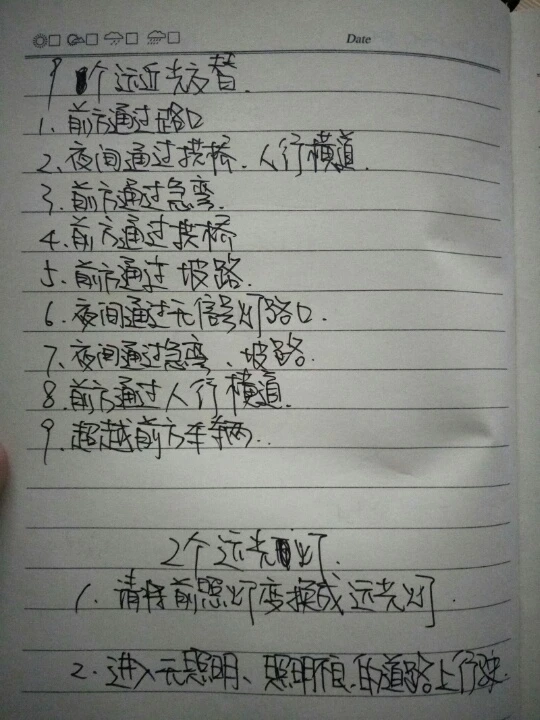 Date
9个远近光交替.
1、前方通过路口
2、夜间通过拱桥、人行横道.
3、前方通过急弯.
4、前方通过拱桥
5、前方通过坡路.
6、夜间通过无信号灯路口.
7、夜间通过急弯、坡路.
8、前方通过人行横道.
9、超越前方车辆.
2个远光灯.
1、请将前照灯变换成远光灯.
2、进入无照明、照明不良的道路上行驶.